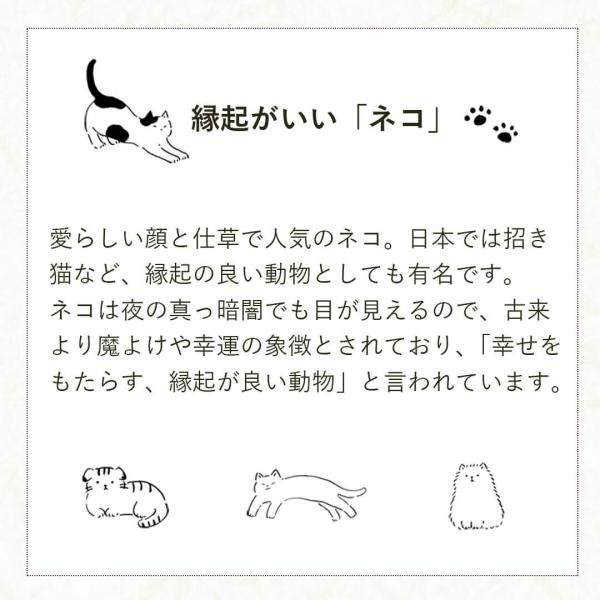 縁起がいい「ネコ」
愛らしい顔と仕草で人気のネコ。日本では招き
猫など、縁起の良い動物としても有名です。
ネコは夜の真っ暗闇でも目が見えるので、古来
より魔よけや幸運の象徴とされており、「幸せを
もたらす、縁起が良い動物」と言われています。